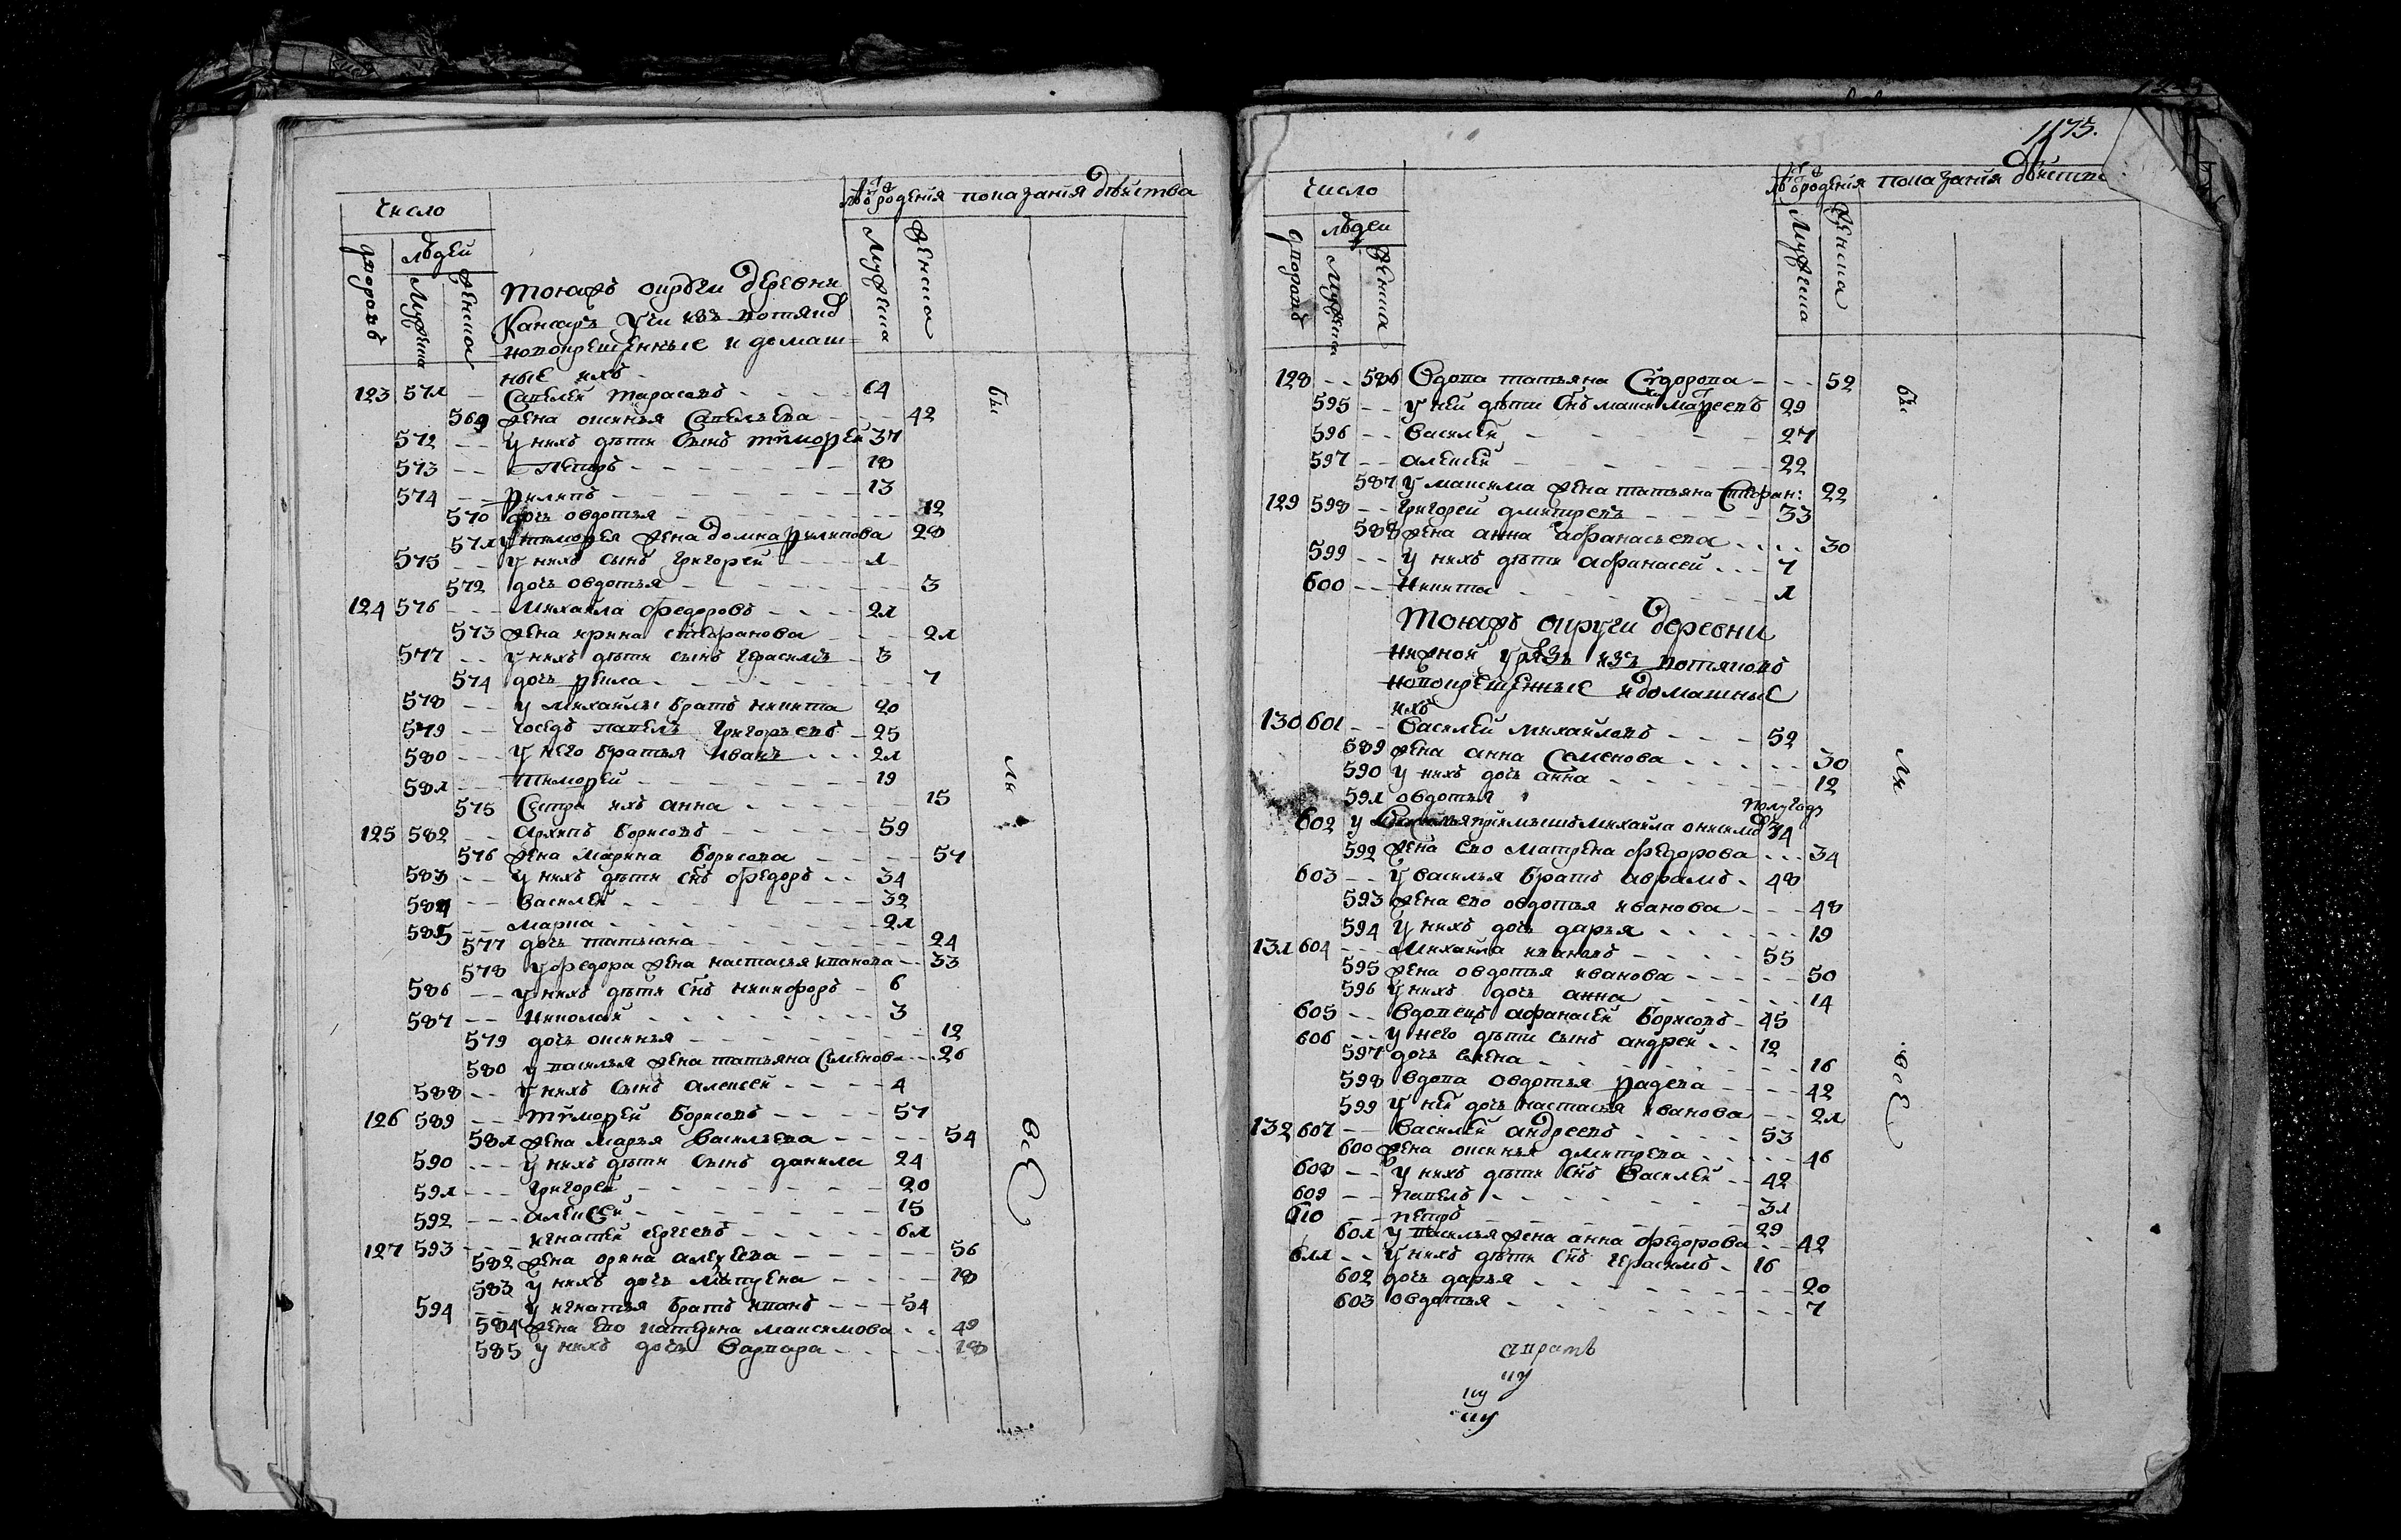 число
лѣ отъ рожденiя показанiя дѣйства
дворовъ
людей
мужеска
женска
мужеска
женска
Тогожъ округи деревни
новокрещенные и домаш
ные ихъ
123 571 Савелей Тарасовъ 64
569 жена оксинья Савельева 42
572 у нихъ дѣти сынъ тимофей 37
573 Петръ 18
574 филипъ 13
570 дочь овдотья 12
571 у тимофея жена домна филипова 28
575 у нихъ сынъ григорей 1
572 дочь овдотья 3
124 576 Михайла федоровъ 21
573 жена ирина стефанова 21
577 у нихъ дѣти сынъ герасимъ 3
574 дочь фекла 7
578 у михайлы братъ никита 20
579 соседъ павелъ григорьевъ 25
580 у него братья иванъ 21
581 тимофей 19
575 Сестра ихъ анна 15
125 582 архипъ борисовъ 59
576 жена марина борисова 57
583 у нихъ дѣти снъ федоръ 34
584 василей 32
585 марка 21
577 дочь татьяна 24
578 у федора жена настасья иванова 33
586 у нихъ дѣти снъ никифоръ 6
587 николай 3
579 дочь оксинья 12
580 у василья жена татьяна семенова 26
588 у нихъ сынъ алексей 4
126 589 тимофей борисовъ 57
581 жена марья васильева 54
590 у нихъ дѣти сынъ данила 24
591 григорей 20
592 алексей 15
127 593 игнатей сергеевъ 61
582 жена орина алексеева 56
583 у нихъ дочь матрена 18
594 у игнатья братъ иванъ 54
584 жена ево катерина максимова 49
585 у нихъ дочь варвара 18
бы
ли
всѣ
1175.
число
лѣ отъ рожденiя показанiя дѣйства
дворовъ
людей
мужеска
женска
мужеска
женска
128 586 вдова татьяна Сидорова 52
595 у ней дѣти снъ максимъ матфеевъ 29
596 василей 27
597 алексей 22
587 у максима жена татьяна стефан: 22
129 598 григорей дмитревъ 33
588 жена анна афанасьева 30
599 у нихъ дѣти афанасей 7
600 никита 1
Тогожъ округи деревни
нижной уряѕь изъ вотяковъ
новокрещенные и домашные
ихъ
130 601 василей михайловъ 52
589 жена анна семенова 30
590 у нихъ дочь анна 12
591 овдотья полугоду
602 у василья приемышъ михайла онисимовъ 34
592 жена ево матрена федорова 34
603 у василья братъ аврамъ 48
593 жена ево овдотья иванова 48
594 у нихъ дочь дарья 19
131 604 михайла ивановъ 55
595 жена овдотья иванова 50
596 у нихъ дочь анна 14
605 вдовецъ афанасей борисовъ 45
606 у него дѣти сынъ андрей 12
597 дочь елена 16
598 вдова овдотья фадеева 42
599 у ней дочь настасья иванова 21
132 607 василей андреевъ 53
600 жена оксинья дмитрева 46
608 у нихъ дѣти снъ василей 42
609 павелъ 31
610 петръ 29
601 у василья жена анна федорова 42
611 у нихъ дѣти снъ герасимъ 16
602 дочь дарья 20
603 овдотья 7
бы
ли
всѣ